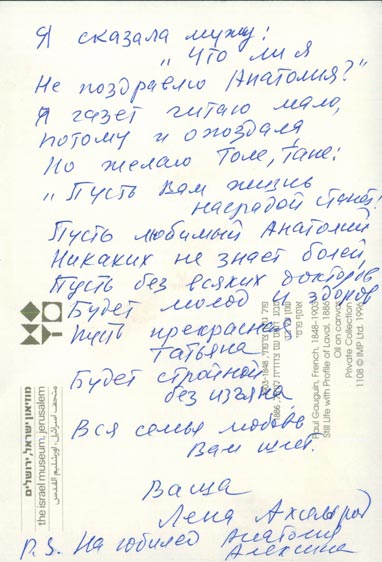 Я сказала мужу:
"Что ли я
Не поздравлю Анатолия?"
Я газет читаю мало,
Потому и опоздала,
Но желаю Толе, Тане:
"Пусть Вам жизнь
наградой станет!
Пусть любимый Анатолий
Никаких не знает болей,
Пусть без всяких докторов
Будет молод и здоров
Пусть прекрасная
Татьяна
Будет стройной
без изъяна
Вся семья любовь
Вам шлет.
Ваша
Лена Ахальрод
P.S. На юбилей Анатолия
Алексина
מוזיאון ישראל, ירושלים
the israel museum, jerusalem
متحف اسرائيل، اورشليم القدس
Paul Gauguin, French, 1848-1903
Still Life with Profile of Laval, 1886
Oil on canvas
Private Collection
1108 © IMP Ltd. 1996